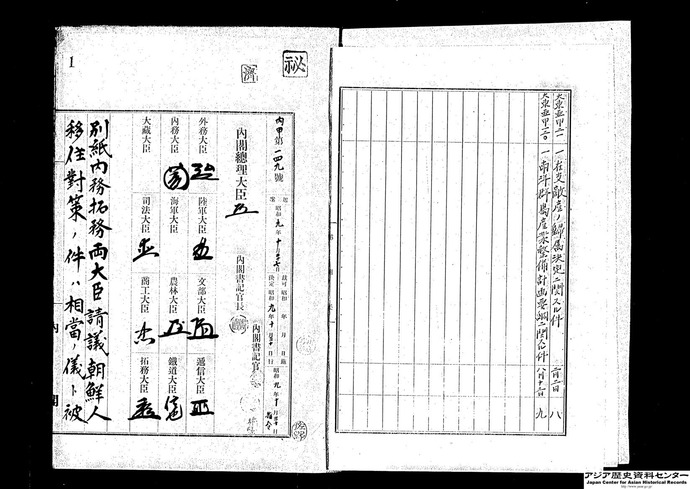 大東亜甲二一 一、在支敵産ノ歸属決定ニ関スル件 二月二日 八
一、南洋群島産業整備計画要綱ニ関スル件 九
秘
濟
1
内甲第一四九號
起案 昭和九年十月
裁可 昭和 年 月 日
決定 昭和九年十月三十日
施行 昭和九年十月三十日
内閣總理大臣
内閣書記官長
内閣書記官
外務大臣
陸軍大臣
文部大臣
遞信大臣
内務大臣
海軍大臣
農林大臣
鐵道大臣
大藏大臣
司法大臣
商工大臣
拓務大臣
別紙内務拓務両大臣請議朝鮮人
移住對策ノ件ハ相當ノ儀ト被
内閣
アジア歴史資料センター
Japan Center for Asian Historical Records
http://www.jacar.go.jp/